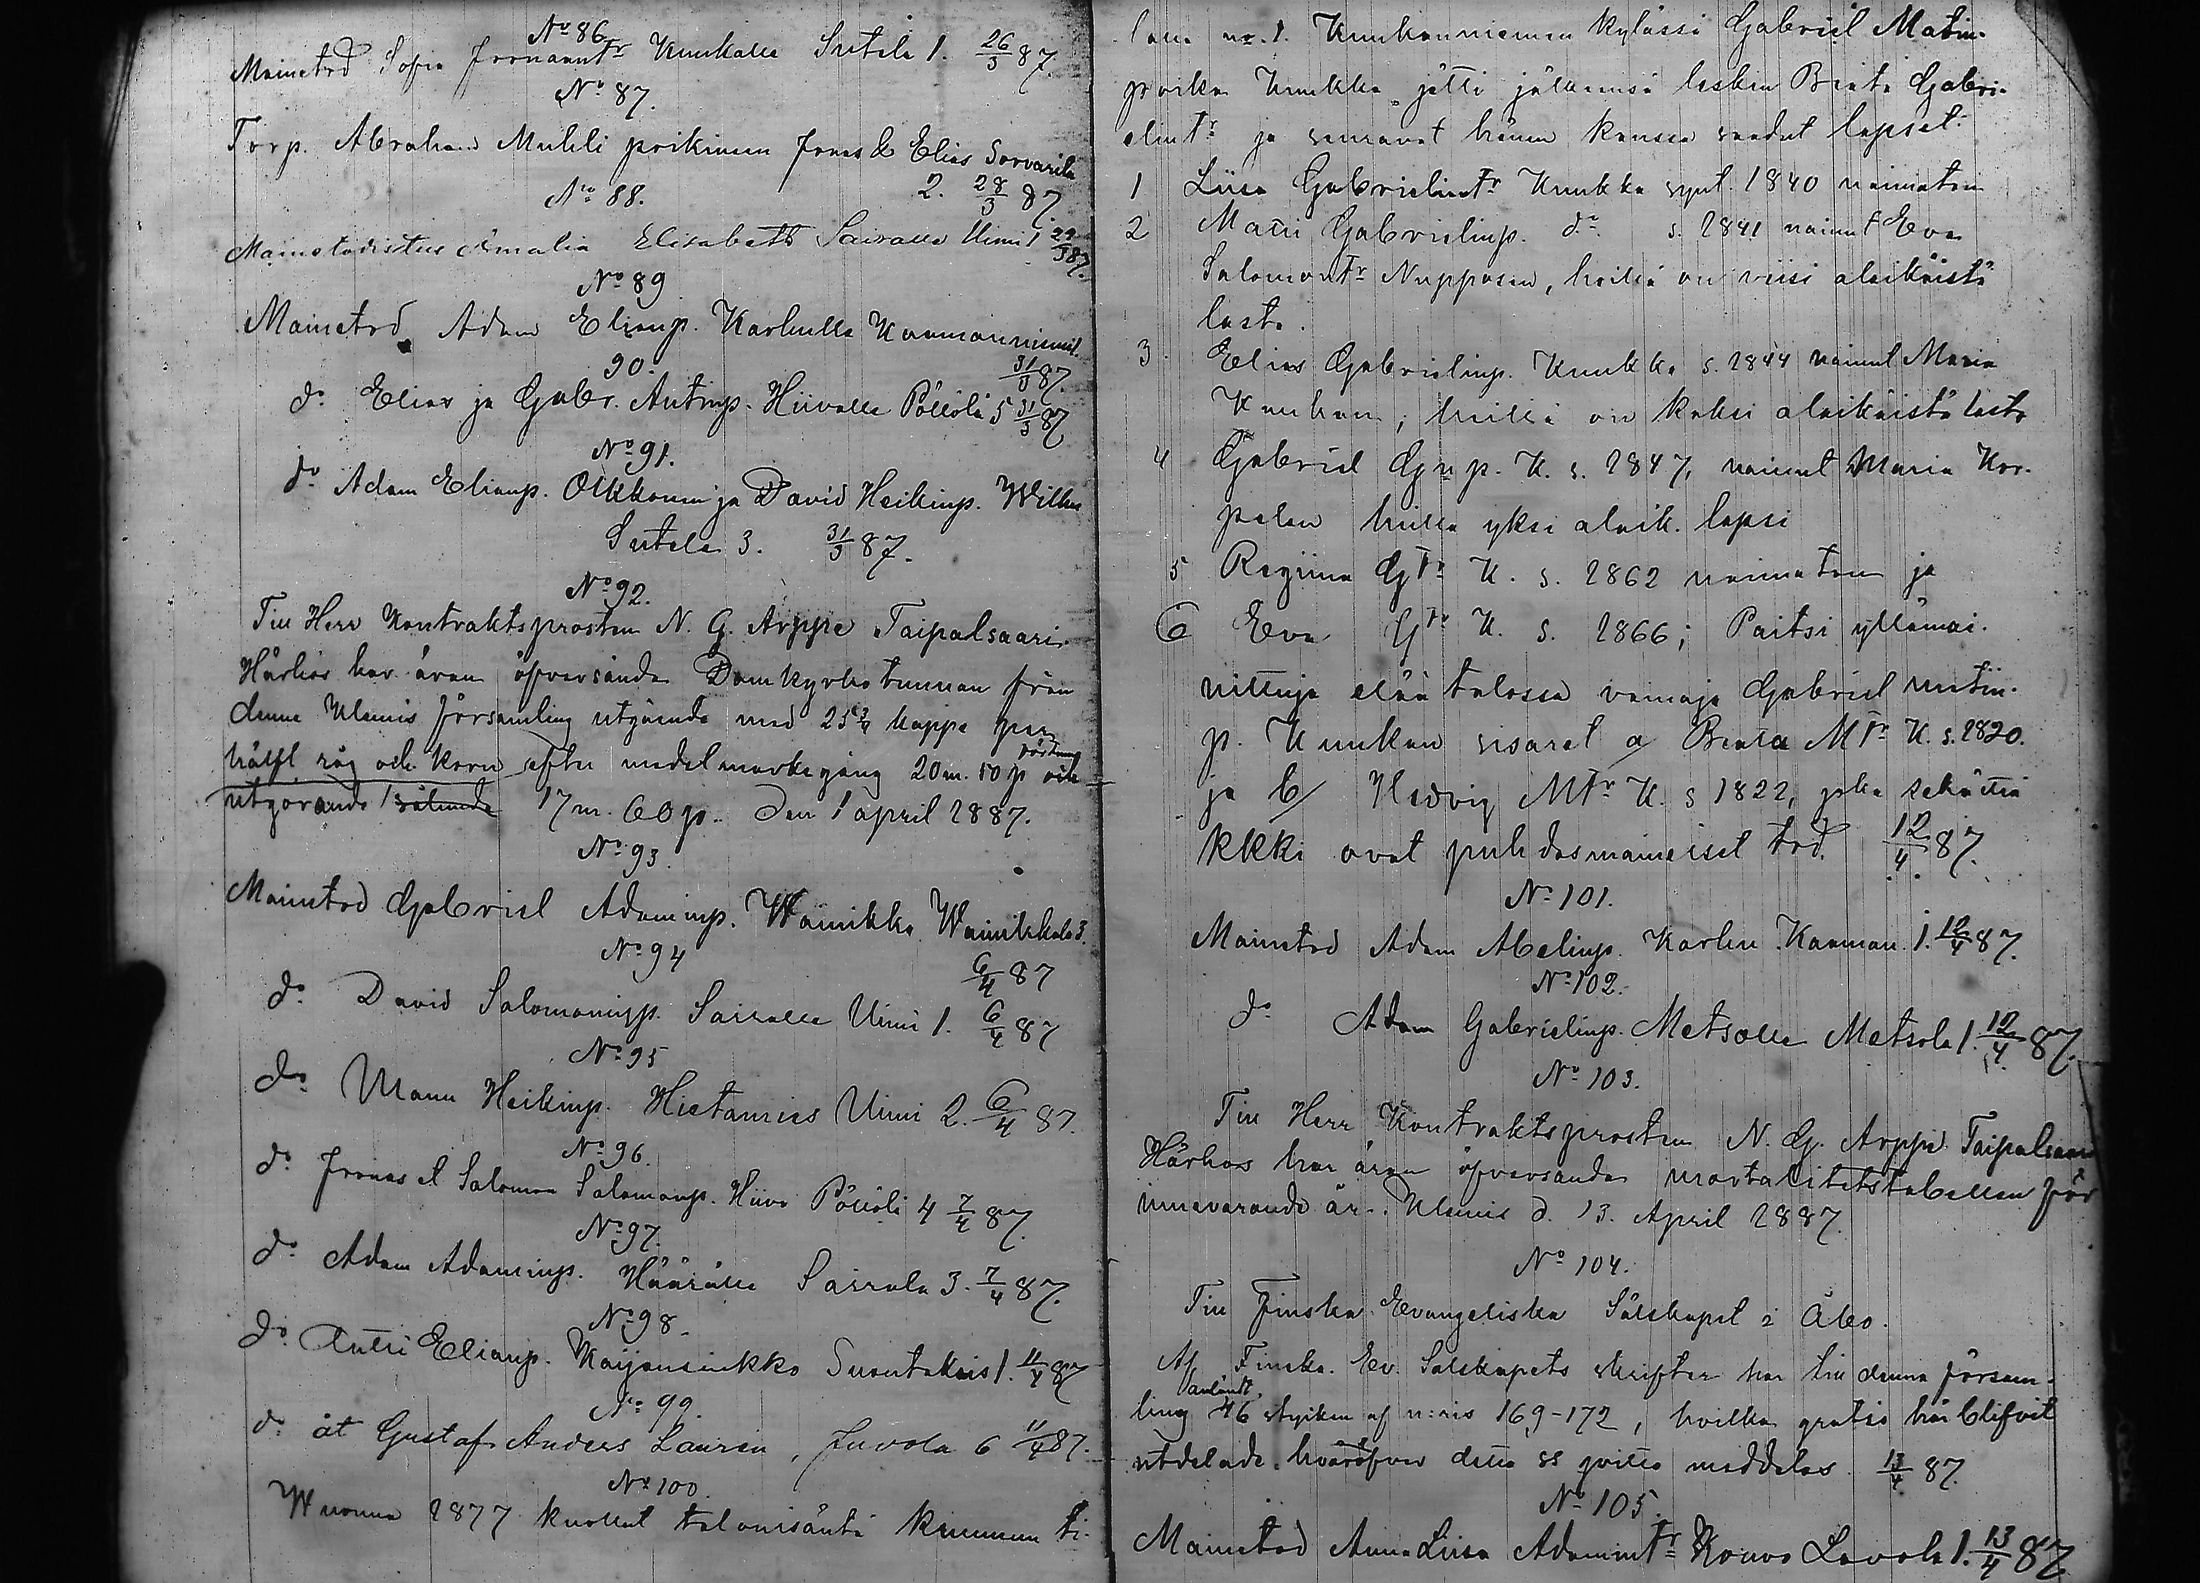 No 86
Mainetod Sofia Joonaantr Kuukalle Sutela 1. 26/3 87.
No 87.
Torp. Abraham Muhli poikineen Jonas & Elias Sorvarila
2. 28/3 87
No 88.
Mainetodistus Amalia Elisabeth Sairalle Uimi 1 29/3 87.
No 89
Mainetod. Adam Elianp. Karhulle Kaamanniemi
31/3 87.
90.
do Elias ja Gabr. Antinp. Hiivalle Pöllölä 5 31/3 87
No 91.
do Adam Elianp. Olkkonen ja David Heikinp. Wilku
Sutela 3. 31/3 87.
No 92.
Till Herr Kontraktsprosten N. G. Arppe Taipalsaari.
Härhos har äran öfversända Domkyrkotunnan från
denna Klemis församling utgående med 25 3/4 kappe per
hälft råg och korn efter medelmarkegång 20 m. 50 p och
utgörande sålunda 17 m. 60 p. Den 1 april 1887.
No 93.
Mainetod Gabriel Adaminp. Wainikka Wainikkala 3.
6/4 87
No 94
do David Salomoninp. Sairalle Uimi 1. 6/4 87
No 95
do Manu Heikinp. Hietamies Uimi 2. 6/4 87.
No 96.
do Joonas & Salomon Salomonp. Hiivo Pöllölä 4 7/4 87.
No 97.
do Adam Adaminp. Häärälle Sairala 3. 7/4 87.
No 98.
do Antti Elianp. Kaijansinkko Suontakais 1. 11/4 87
No 99.
do åt Gustaf Anders Lauren, Juvola 6 11/4 87.
No 100.
Wuonna 1877 kuollut talonisäntä Kruunun ti-
lan no. 1. Kuukanniemen kylässä Gabriel Matin-
poika Kuukka, jätti jälkeensä lesken Beata Gabri-
elintr ja seuravat hänen kanssa saadut lapset:
1 Liisa Gabrielintr Kuukka synt. 1840 naimaton
2 Matti Gabrielinp. do s. 1841 nainut Eva
Salomontr Nupposen, heillä on viisi alaikäistä
lasta.
3 Elias Gabrielinp. Kuukka s. 1844 nainut Maria
Kauhan, heillä on kaksi alaikäistä lasta
4 Gabriel Gn p. K. s. 1847, nainut Maria Kor-
pelan heillä yksi alaik. lapsi
5 Regiina Gtr K. s. 1862 naimaton ja
6 Eva Gtr K. s. 1866; Paitsi yllämai-
nittuja elää talossa vainaja Gabriel Matin-
p. Kuukan sisaret a/ Beata Mtr K. s. 1820.
ja b/ Hedvig Mtr K. s 1822, joka sekä että
kkki ovat puhdasmaineiset tod. 12/4 87.
No 101.
Mainetod Adam Abelinp. Karhu Kaaman. 1. 12/4 87.
No 102.
do Adam Gabrielinp. Metsolle Metsola 1. 12/4 87.
No 103.
Till Herr Kontraktsprosten N. G. Arppe Taipalsaari
Härhos har äran öfversända mortalitetstabellen för
innevarande år. Klemis d. 13. April 1887.
No 104.
Till Finska Evangeliska Sälskapet i Åbo.
Af Finska Ev. Sälskapets skrifter har till denna försam-
anländt
ling 46 stycken af n:ris 169-172, hvilka gratis här blifvit
utdelade, hvaröfver detta ss qvitto meddelas 13/4 87.
No 105.
Mainetod Anna Liisa Adamintr Kouvo Lavola 1. 13/4 87